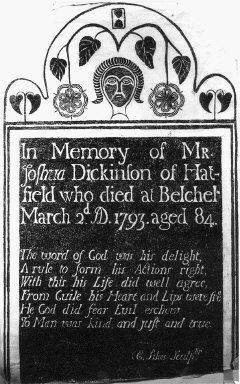 In Memory of MR.
Joshua Dickinson of Hat-
field who died at Belcher
March 2d AD. 1793. aged 84.
The word of God was his delight,
A rule to form his Actions right,
With this his Life did well agree,
From Guile his Heart and Lips were free
He God did fear Evil eschew
To Man was kind and just and true.
Sculptr